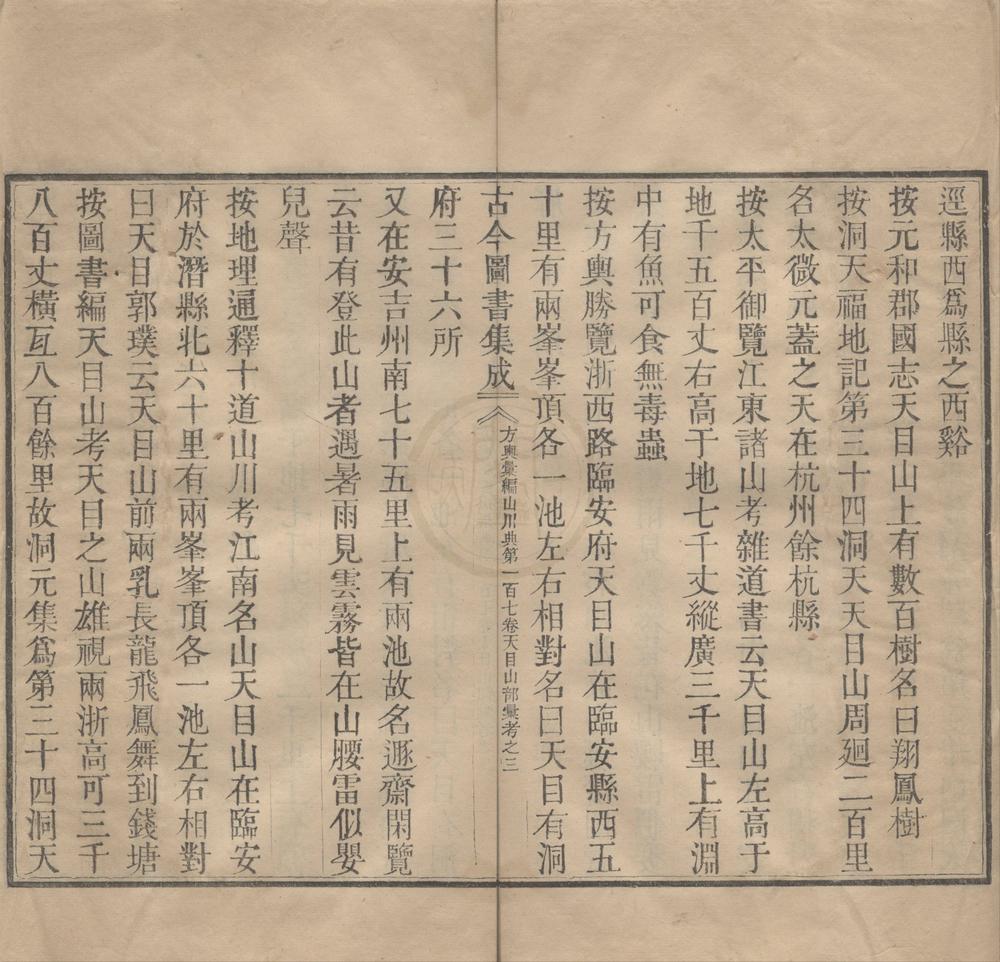 逕縣西爲縣之西谿
按元和郡國志天目山上有數百樹名曰翔鳳樹
按洞天福地記第三十四洞天天目山周廻二百里
名太微元蓋之天在杭州餘杭縣
按太平御覽江東諸山考雜道書云天目山左高于
地千五百丈右高于地七千丈縱廣三千里上有淵
中有魚可食無毒蟲
按方輿勝覽浙西路臨安府天目山在臨安縣西五
十里有兩峯峯頂各一池左右相對名曰天目有洞
古今圖書集成
方輿彙編山川典第一百七卷天目山部彙考之三
府三十六所
又在安吉州南七十五里上有兩池故名遯齋閑覽
云昔有登此山者遇暑雨見雲霧皆在山腰雷似嬰
兒聲
按地理通釋十道山川考江南名山天目山在臨安
府於潛縣北六十里有兩峯峯頂各一池左右相對
曰天目郭璞云天目山前兩乳長龍飛鳳舞到錢塘
按圖書編天目山考天目之山雄視兩浙高可三千
八百丈橫亙八百餘里故洞元集爲第三十四洞天